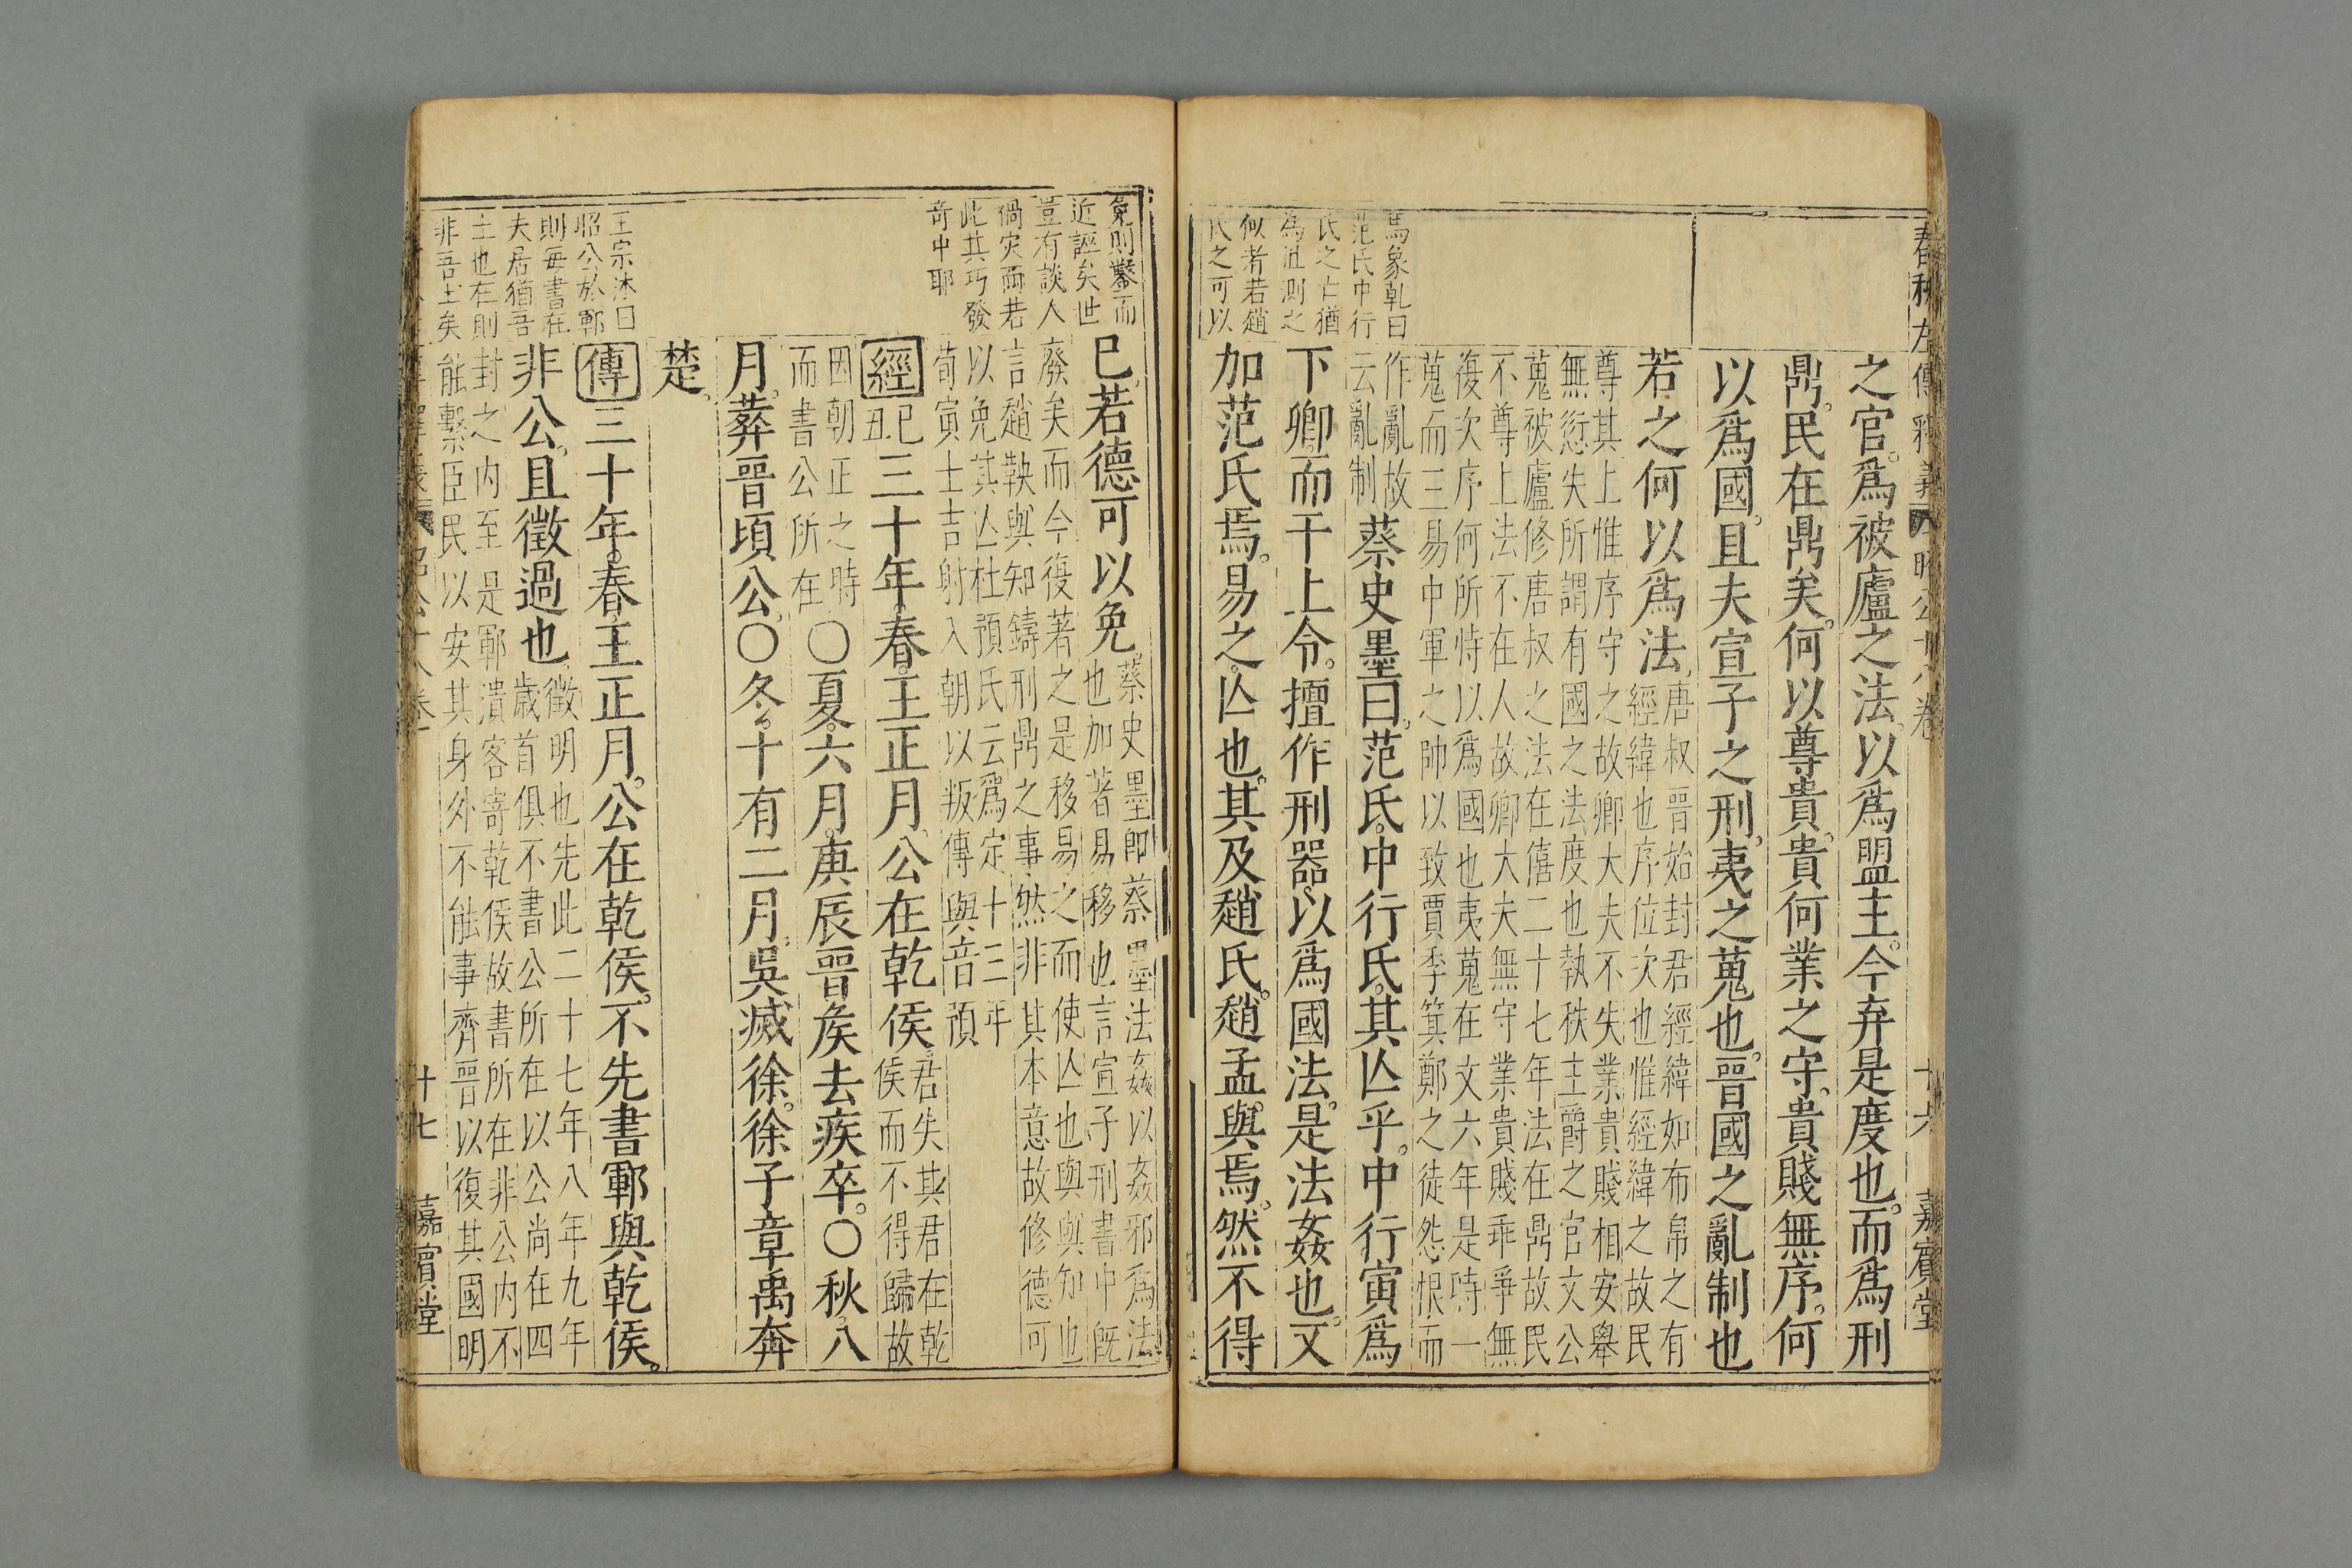 春秋左傳釋義 昭公十八卷 十六 嘉賓堂
之官爲被廬之法以爲盟主今弃是度也而爲刑
鼎民在鼎矣何以尊貴貴何業之守貴賤無序何
以爲國且夫宣子之刑夷之蒐也晉國之亂制也
若之何以爲法
唐叔晉始封君經緯如布帛之有
經緯也序位次也惟經緯之故民
尊其上惟序守之故卿大夫不失業貴賤相安舉
無愆失所謂有國之法度也執秩主爵之官文公
蒐被廬修唐叔之法在僖二十七年法在鼎故民
不尊上法不在人故卿大夫無守業貴賤乖爭無
復次序何所恃以爲國也夷蒐在文六年是時一
蒐而三易中軍之帥以致賈季箕鄭之徒怨恨而
作亂故
云亂制
蔡史墨曰范氏中行氏其亾乎中行寅爲
下卿而干上令擅作刑器以爲國法是法姦也又
加范氏焉易之亾也其及趙氏趙孟與焉然不得
馬象乾曰
范氏中行
氏之亡猶
爲泄測之
似者若趙
氏之可以
免則鑿而
近誣矣世
豈有談人
禍灾而若
此其巧發
奇中耶
已若德可以免
蔡史墨即蔡墨法姦以姦邪爲法
也加著易移也言宣子刑書中旣
廢矣而今復著之是移易之而使亾也與與知也
言趙鞅與知鑄刑鼎之事然非其本意故修德可
以免其亾杜預氏云爲定十三年
荀寅士吉射入朝以叛傳與音預
經
己
丑
三十年春王正月公在乾侯
君失其君在乾
侯而不得歸故
因朝正之時
而書公所在
○夏六月庚辰晉矦去疾卒○秋八
月葬晉頃公○冬十有二月吳滅徐徐子章禹奔
楚
傳三十年春王正月公在乾侯不先書鄆與乾侯
非公且徵過也
徵明也先此二十七年八年九年
歲首俱不書公所在以公尚在四
封之内至是鄆潰客寄乾侯故書所在非公内不
能繫臣民以安其身外不能事齊晉以復其國明
王宗沐曰
昭公於鄆
則每書在
夫居猶吾
土也在則
非吾土矣
十七 嘉賓堂